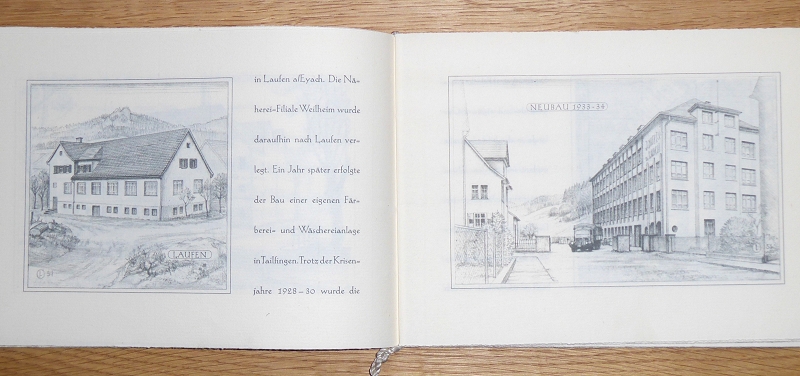 LAUFEN
in Laufen a/Eyach. Die Nä-
herei-Filiale Weilheim wurde
daraufhin nach Laufen ver-
legt. Ein Jahr später erfolgte
der Bau einer eigenen Fär-
berei- und Wäschereianlage
in Tailfingen. Trotz der Krisen-
jahre 1928-30 wurde die
NEUBAU 1933-34